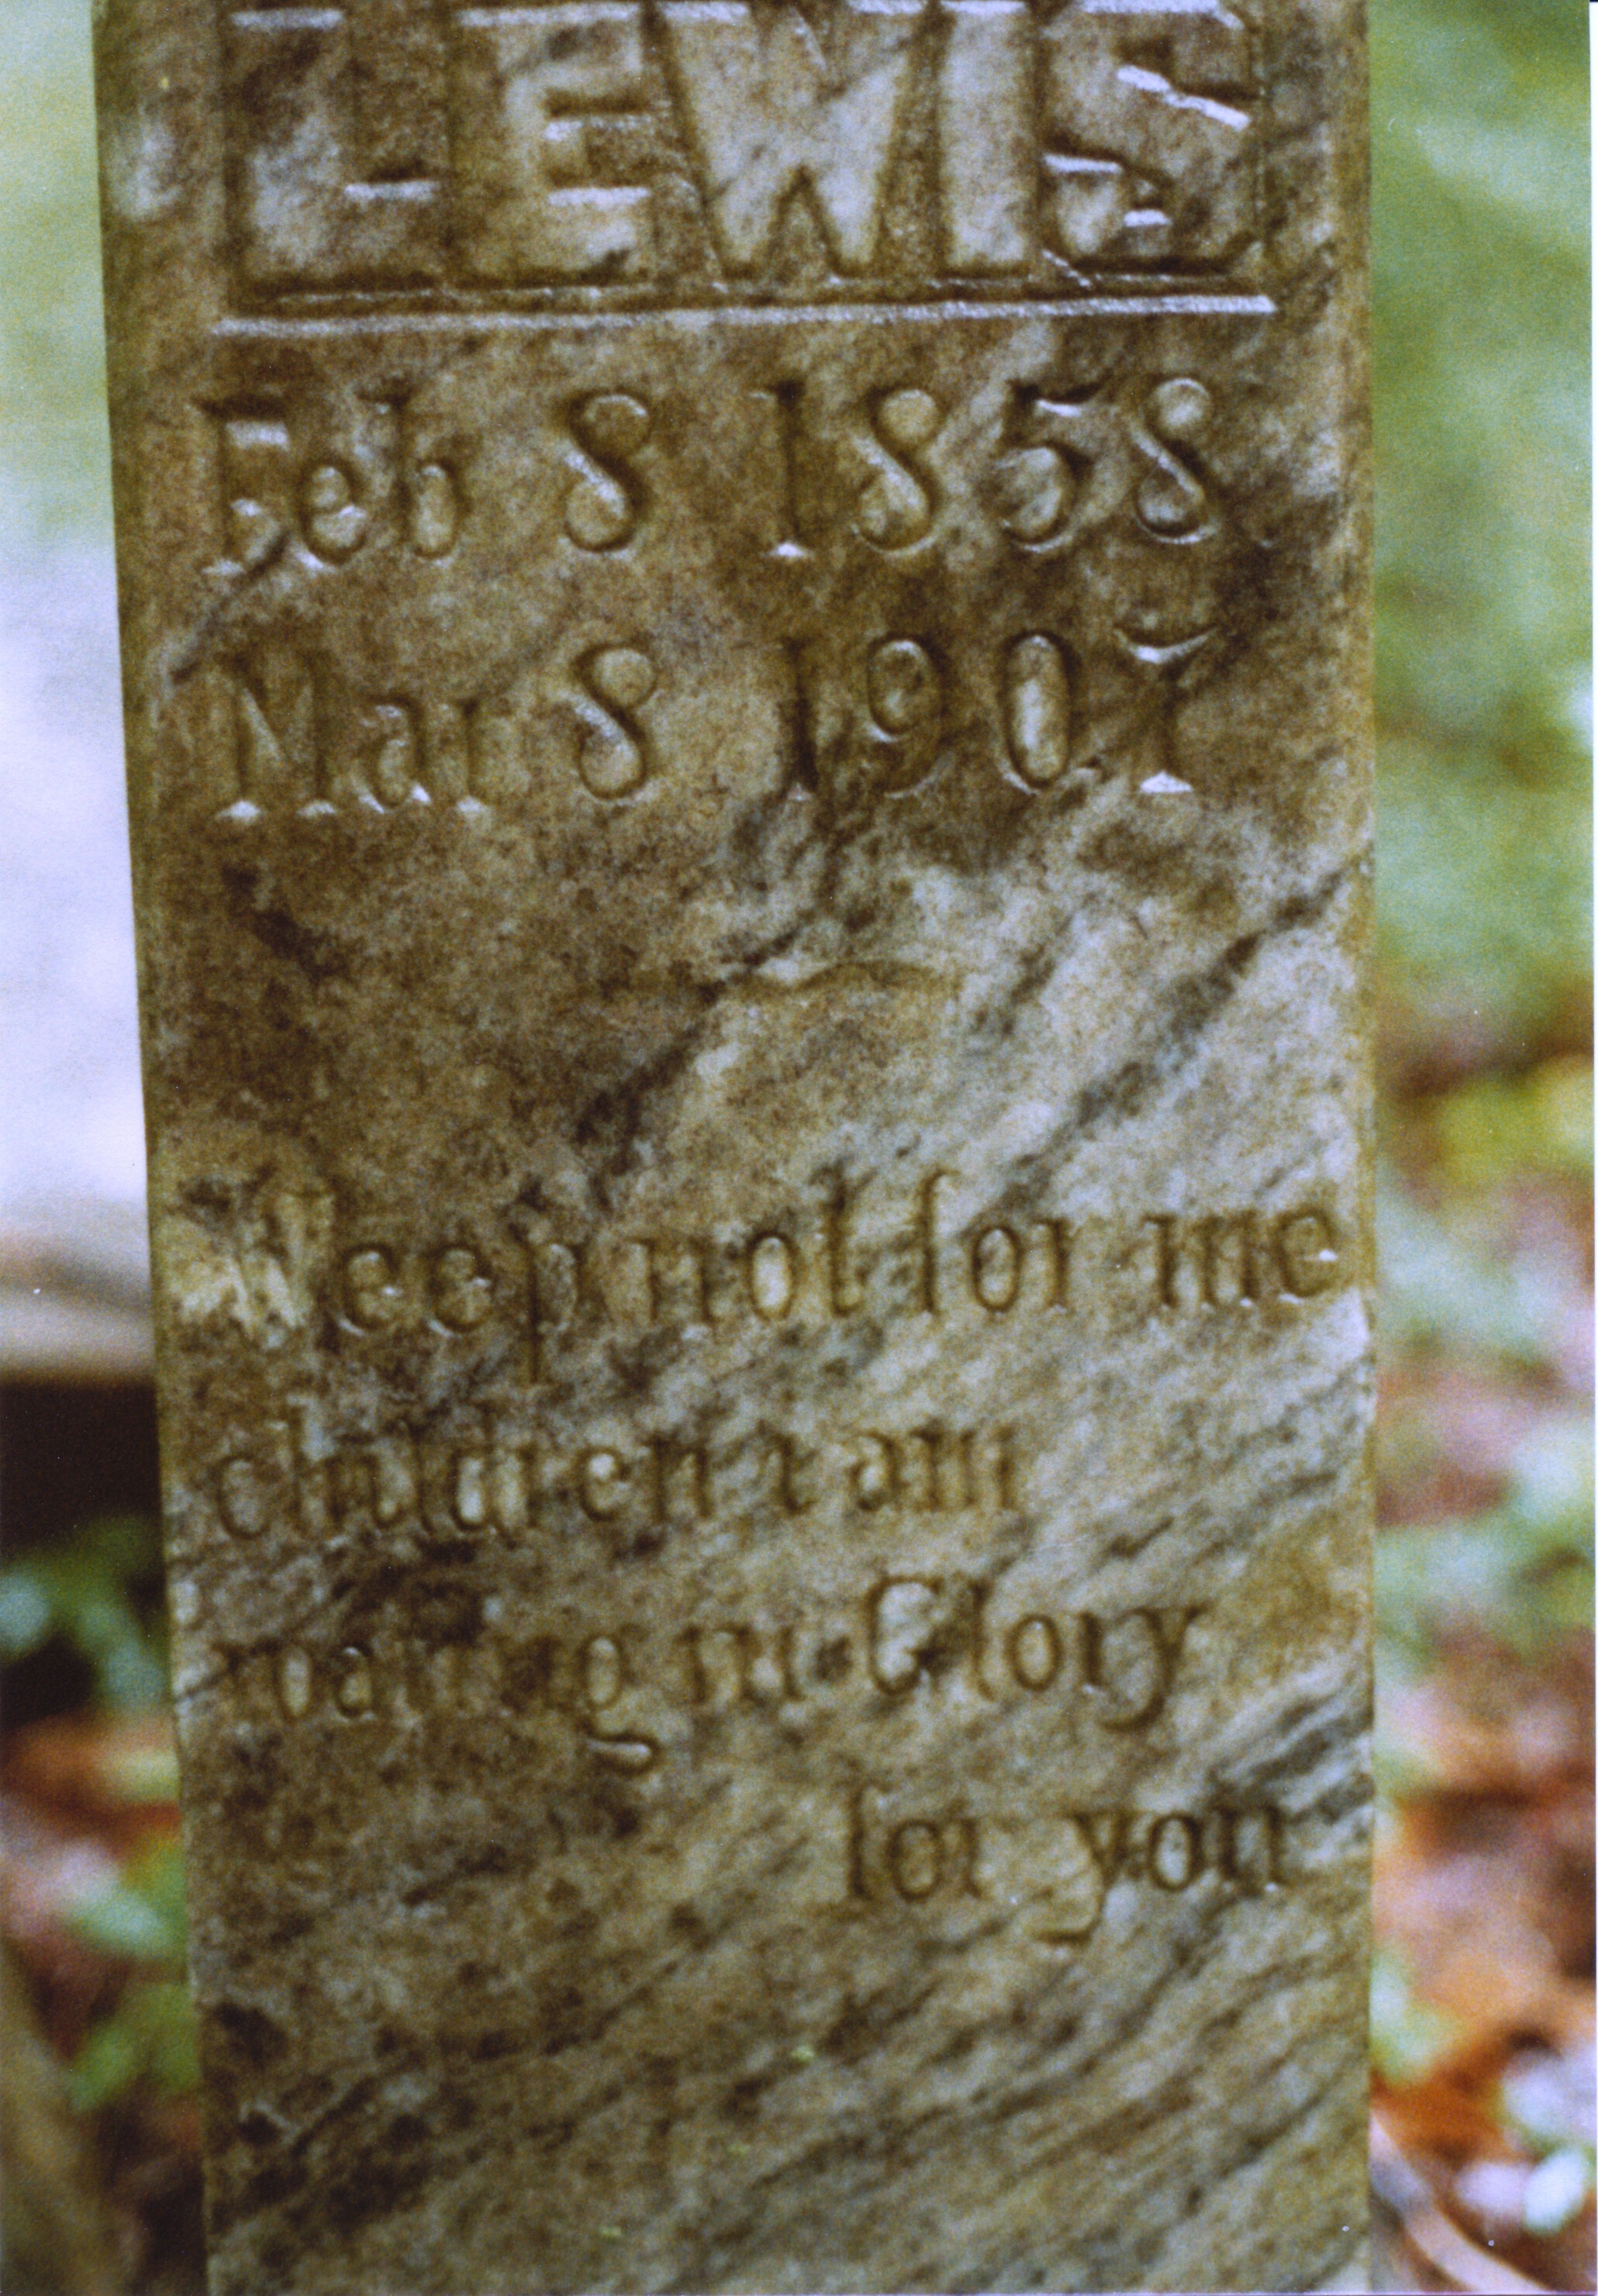 LEWIS
Feb 8 1858
Mar 8 1907
Weep not for me
children i am
in Glory
for you